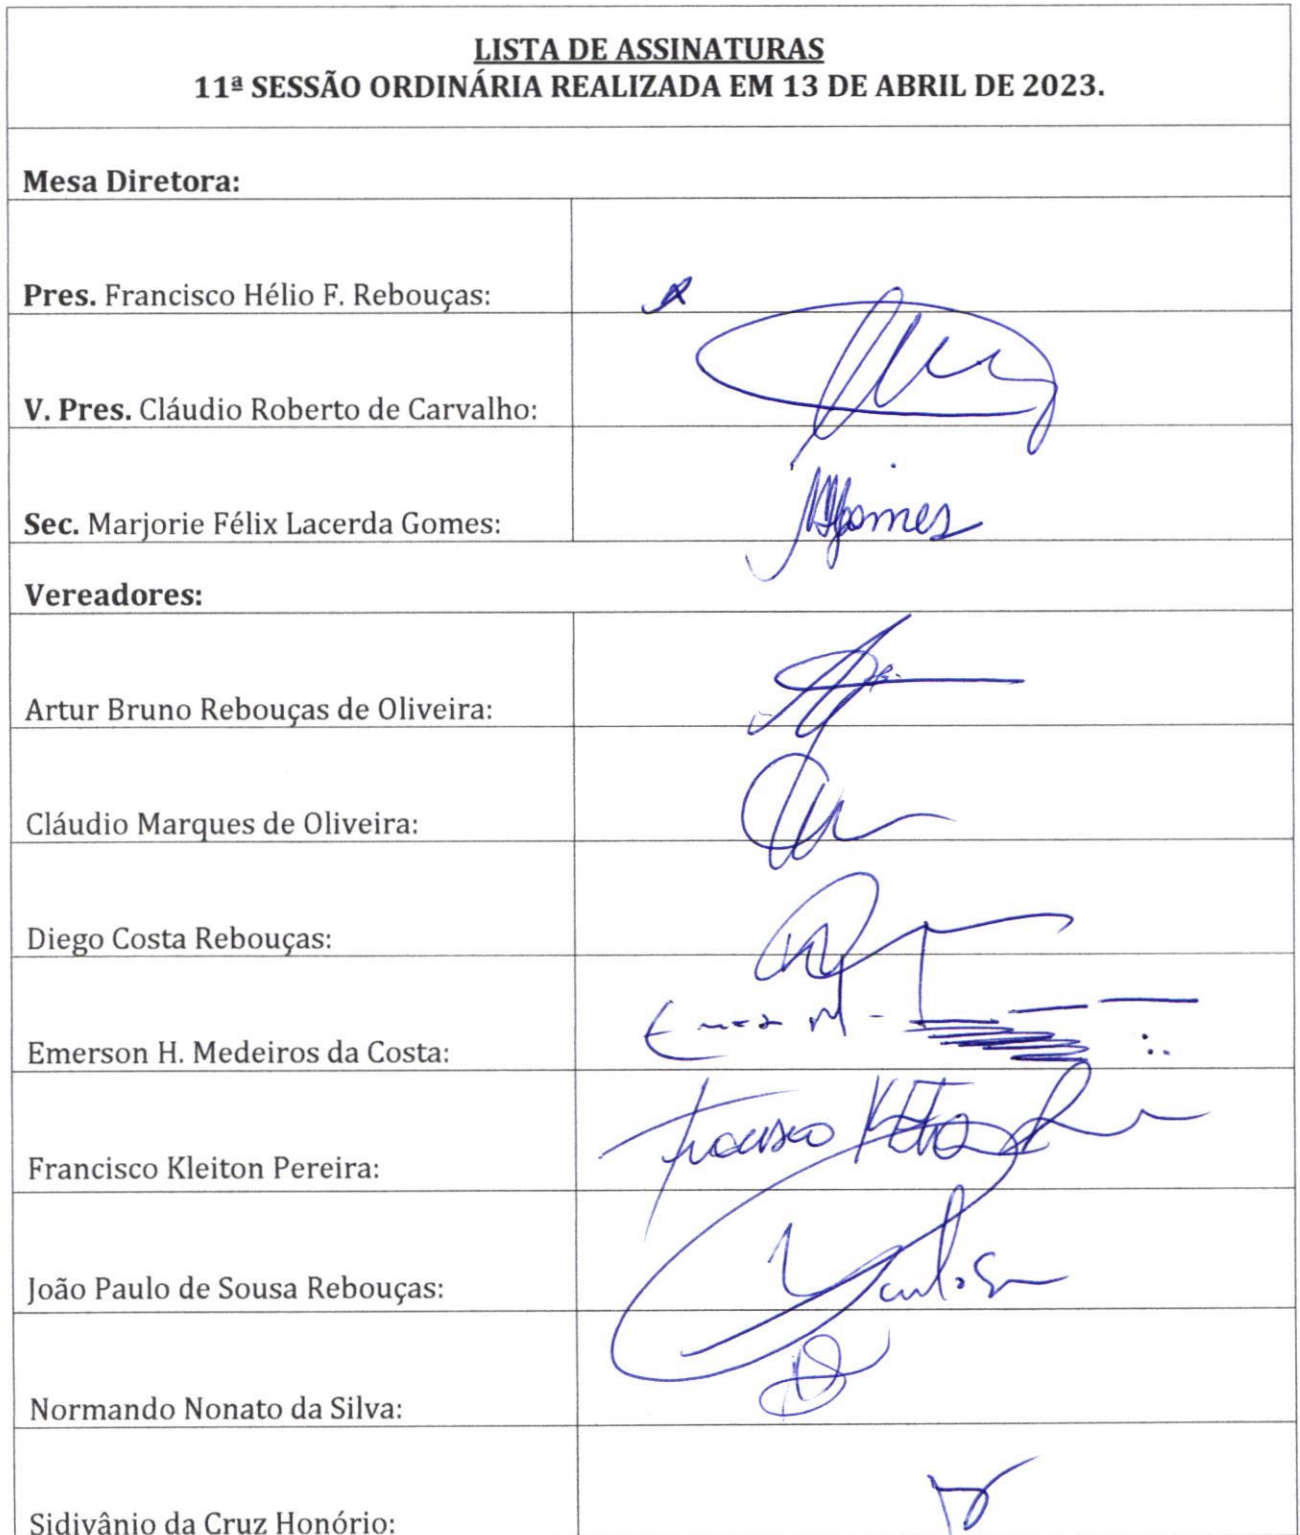 LISTA DE ASSINATURAS
11ª SESSÃO ORDINÁRIA REALIZADA EM 13 DE ABRIL DE 2023.
Mesa Diretora:
Pres. Francisco Hélio F. Rebouças:
V. Pres. Cláudio Roberto de Carvalho:
Sec. Marjorie Félix Lacerda Gomes: MFGomes
Vereadores:
Artur Bruno Rebouças de Oliveira:
Cláudio Marques de Oliveira:
Diego Costa Rebouças:
Emerson H. Medeiros da Costa:
Francisco Kleiton Pereira: Francisco
João Paulo de Sousa Rebouças:
Normando Nonato da Silva:
Sidivânio da Cruz Honório: